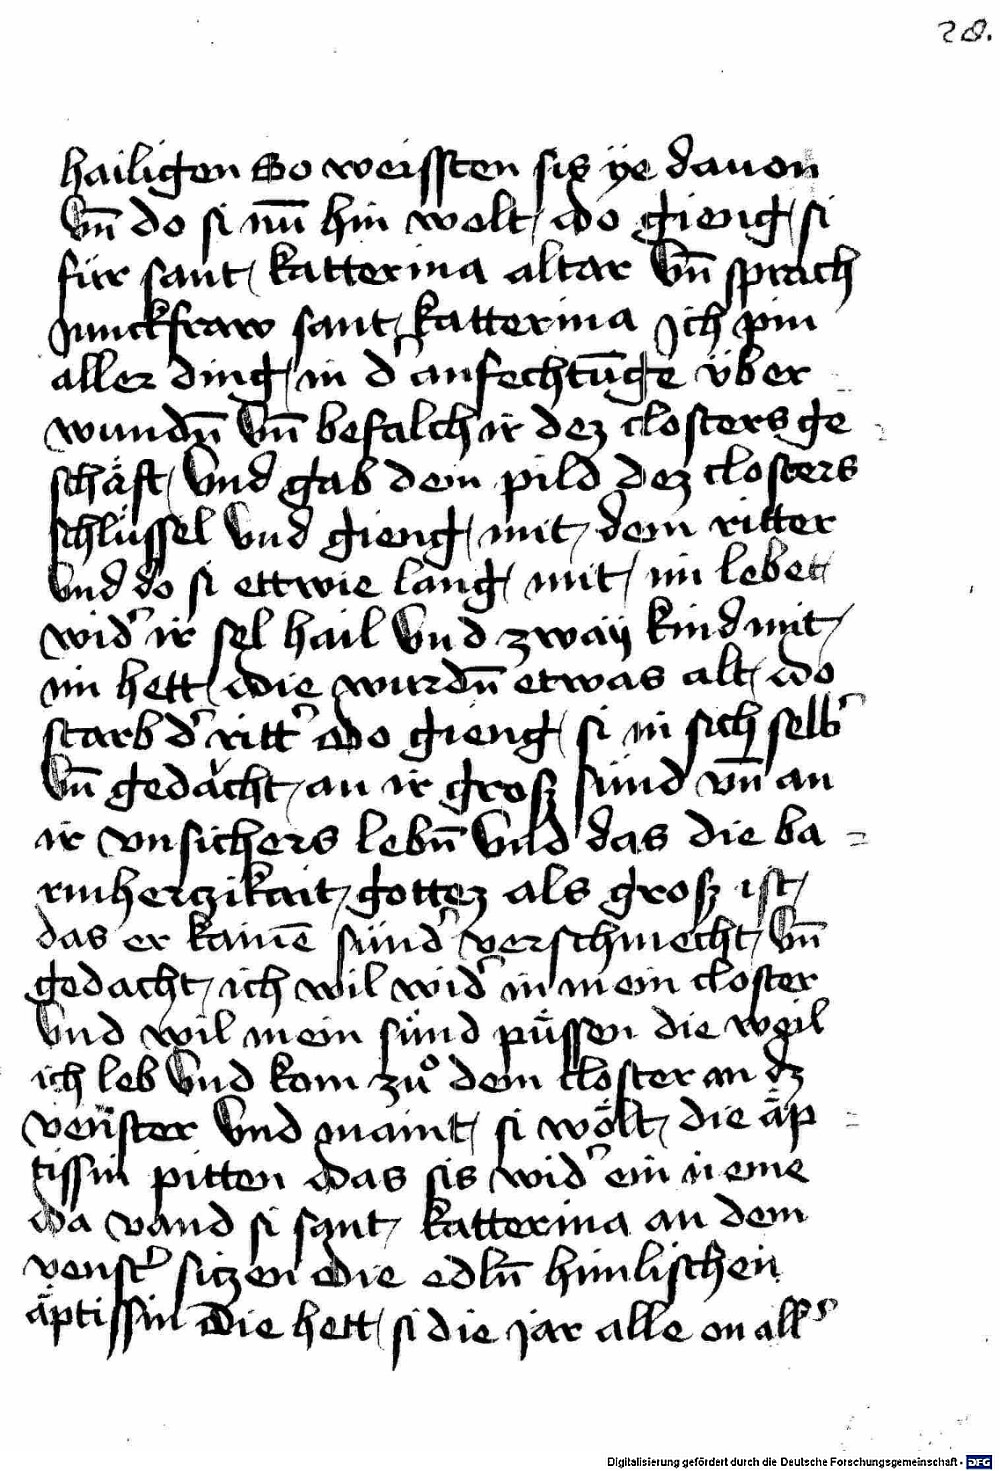 28.
hailigen So weissten sis ÿe dauon
Vn̄ do si nun̄ hin wolt do gieng si
für sant katterina altar Vn̄ sprach
Junckfraw sant katterina Jch pin
aller ding in d' anfechtūge über
wundn̄ Vn̄ befalch ir dez closters ge
schäft Vnd gab dem pild dez closters
schlüssel Vnd gieng mit dem ritter
Vnd do si ettwie lang mit im lebet
wid' ir sel hail Vnd zwaÿ kind mit
im hett die wurdn̄ etwas alt do
starb d' ritt' do gieng si in sich selb'
Vn̄ gedacht an ir grosz sünd vn̄ an
ir vnsichers lebn̄ Vnd das die ba=
rmherczikait gottez als grosz ist
das er kainē sünd' verschmecht Vn̄
gedacht ich wil wid' in mein closter
Vnd wil mein sünd püssen die weil
ich leb Vnd kom zuͦ dem closter an dz
venster Vnd maint si wölt die äp=
tissin pitten das sis wid' ein neme
da vand si sant katterina an dem
venst' siczen die edln̄ himlischen
äptissin Die hett si die jar alle on all's
Digitalisierung gefördert durch die Deutsche Forschungsgemeinschaft - DFG